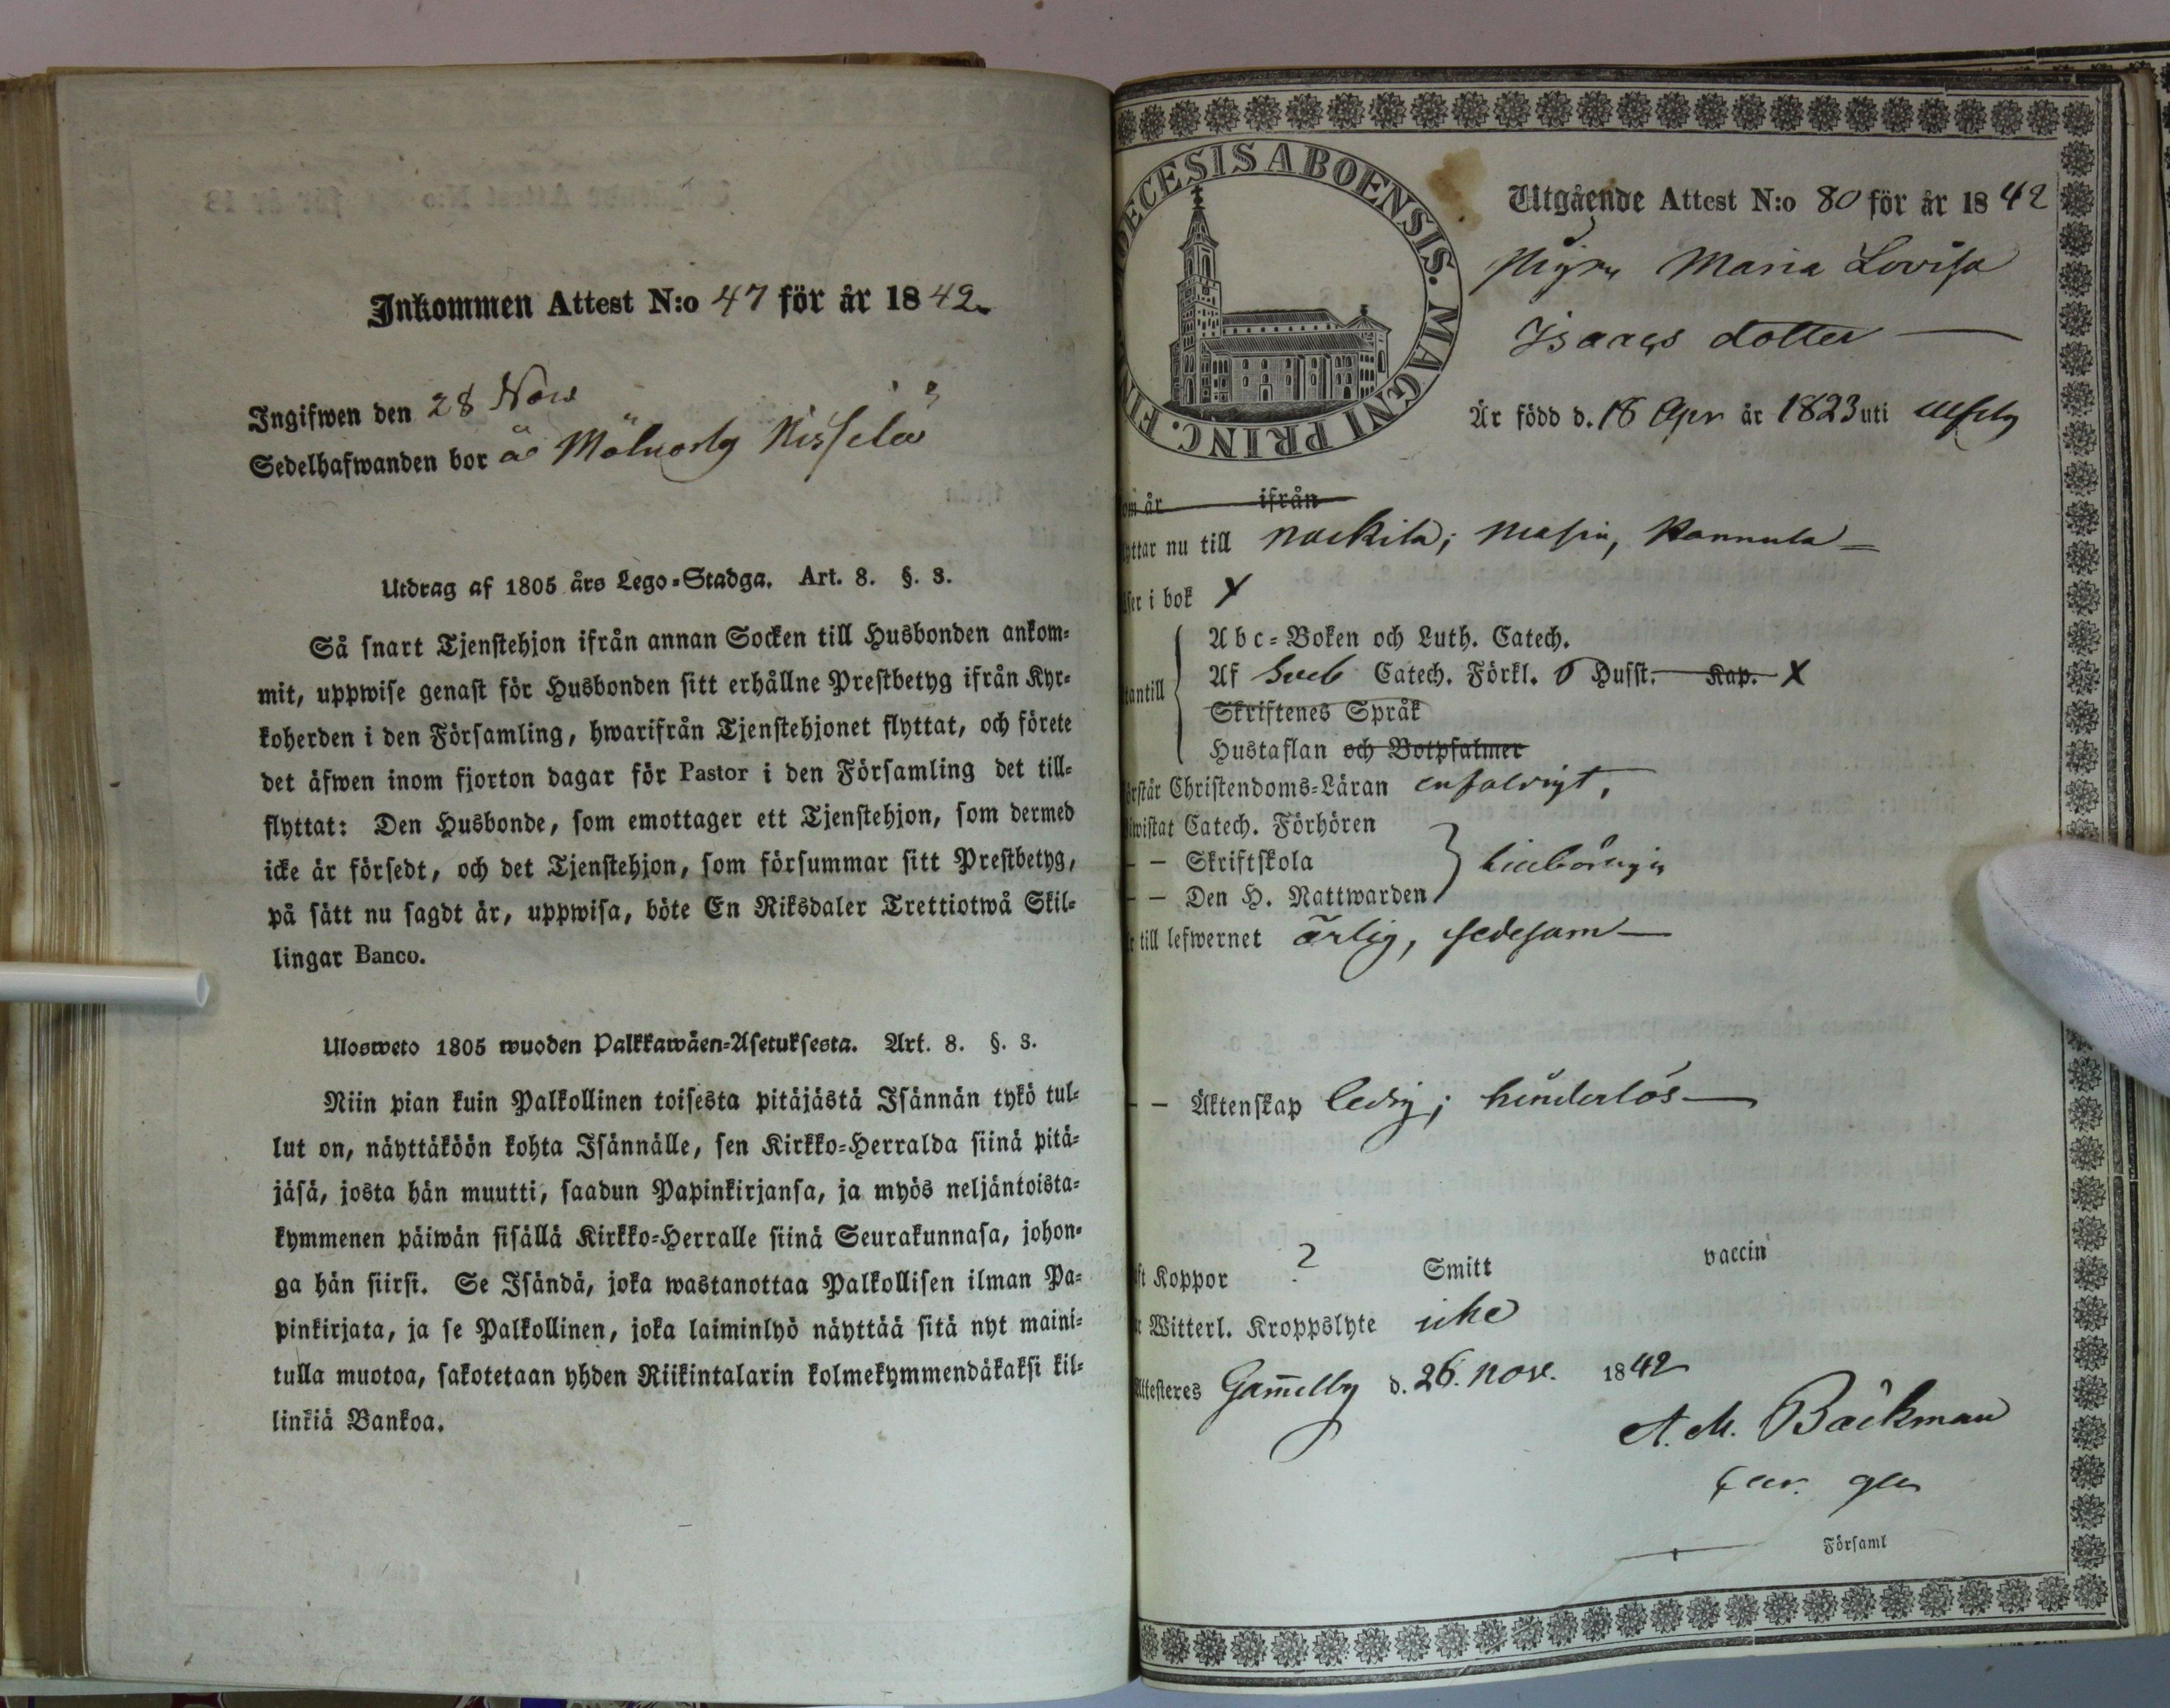 Inkommen Attest N:o 47 för år 1842.
Ingifwen den 28 Nov
Sedelhafwanden bor å Mälnorby Kisselä
Utdrag af 1805 års Lego-Stadga. Art. 8. §. 3.
Så snart Tjenstehjon ifrån annan Socken till Husbonden ankom-
mit, uppwise genast för Husbonden sitt erhållne Prestbetyg ifrån Kyr-
koherden i den Församling, hwarifrån Tjenstehjonet flyttat, och förete
det äfwen inom fjorton dagar för Pastor i den Församling det till-
flyttat: Den Husbonde, som emottager ett Tjenstehjon, som dermed
icke är försedt, och det Tjenstehjon, som försummar sitt Prestbetyg,
på sätt nu sagdt är, uppwisa, böte En Riksdaler Trettiotwå Skil-
lingar Banco.
Ulosweto 1805 wuoden Palkkawäen-Asetuksesta. Art. 8. §. 3.
Niin pian kuin Palkollinen toisesta pitäjästä Isännän tykö tul-
lut on, näyttäköön kohta Isännälle, sen Kirkko-Herralda siinä pitä-
jäsä, josta hän muutti, saadun Papinkirjansa, ja myös neljäntoista-
kymmenen päiwän sisällä Kirkko-Herralle siinä Seurakunnasa, johon-
ga hän siirsi. Se Isändä, joka wastanottaa Palkollisen ilman Pa-
pinkirjata, ja se Palkollinen, joka laiminlyö näyttää sitä nyt maini-
tulla muotoa, sakotetaan yhden Riikintalarin kolmekymmendäkaksi kil-
linkiä Bankoa.
DECESIS ABOENSIS. MAGNI PRINC. FIN
Utgående Attest N:o 80 för år 1842
Pigan Maria Lovisa
Isaacs dotter
Är född d. 18 Apr år 1823 uti
om år ifrån
yttar nu till Nackila; Masia, Kannula
ser i bok X
antill
Abc-Boken och Luth. Catech.
Af Sveb Catech. Förkl. o Husst. Kap. X
Skriftenes Språk
Hustaflan och Botpsalmer
rstår Christendoms-Läran enfaldigt,
iwistat Catech. Förhören
- - Skriftskola
- - Den H. Nattwarden
till lefwernet ärlig, sedesam
- - Äktenskap ledig; hinderlös
st Koppor ? Smitt vaccin
Witterl. Kroppslyte icke
Attesteres Gam̄elby d. 26. nov. 1842
A. M. Bäckman
Församl